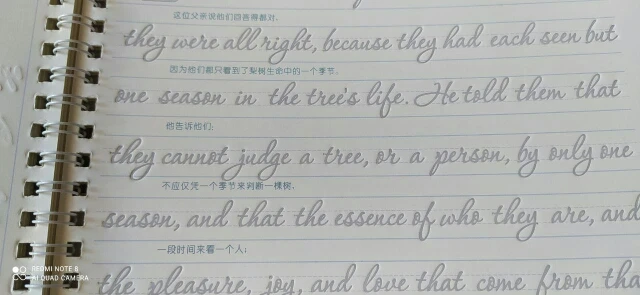 这位父亲说他们回答得都对,
they were all right, because they had each seen but
因为他们都只看到了梨树生命中的一个季节。
one season in the tree's life. He told them that
他告诉他们:
they cannot judge a tree, or a person, by only one
不应仅凭一个季节来判断一棵树,
season, and that the essence of who they are, and
一段时间来看一个人;
the pleasure, joy, and love that come from tha
REDMI NOTE 8
AI QUAD CAMERA